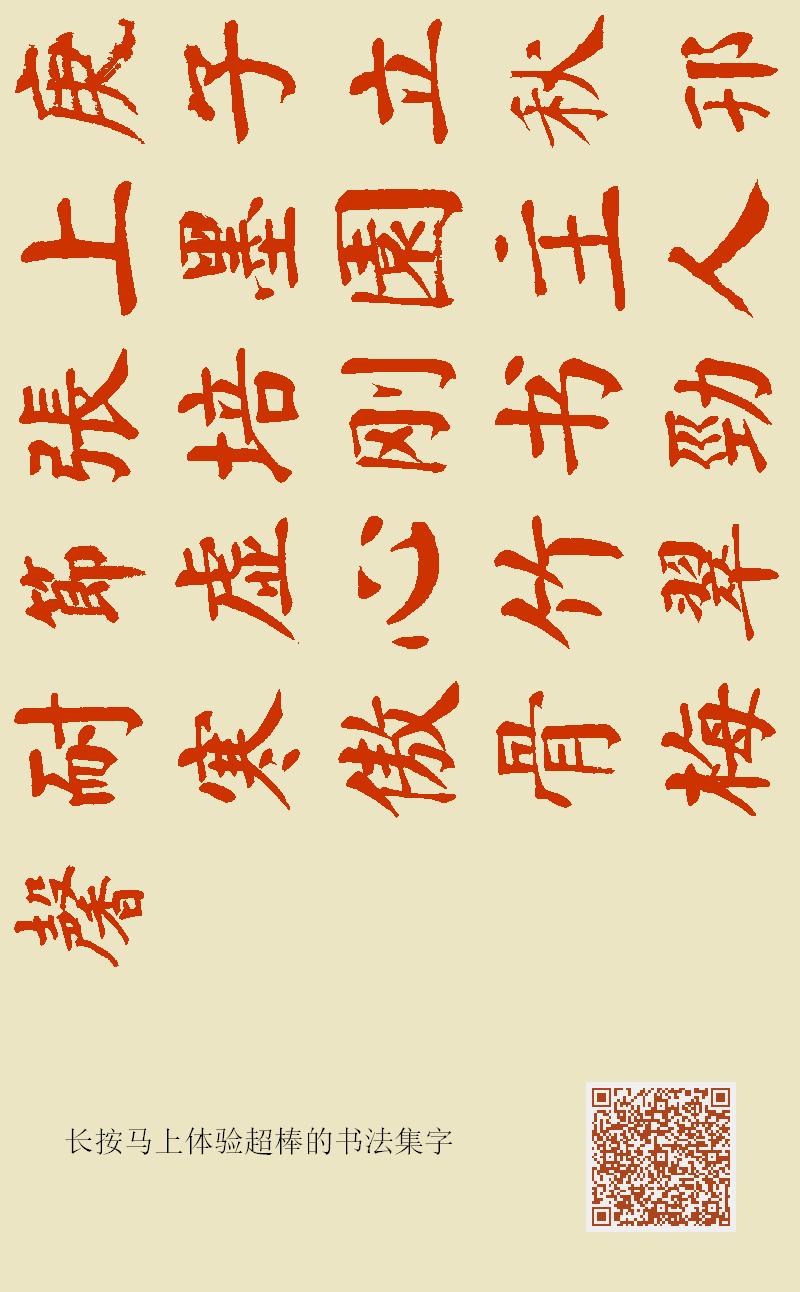 庚子立秋邗
上墨園主人
張培刚书勁
節虚心竹翠
耐寒傲骨梅
馨
长按马上体验超棒的书法集字